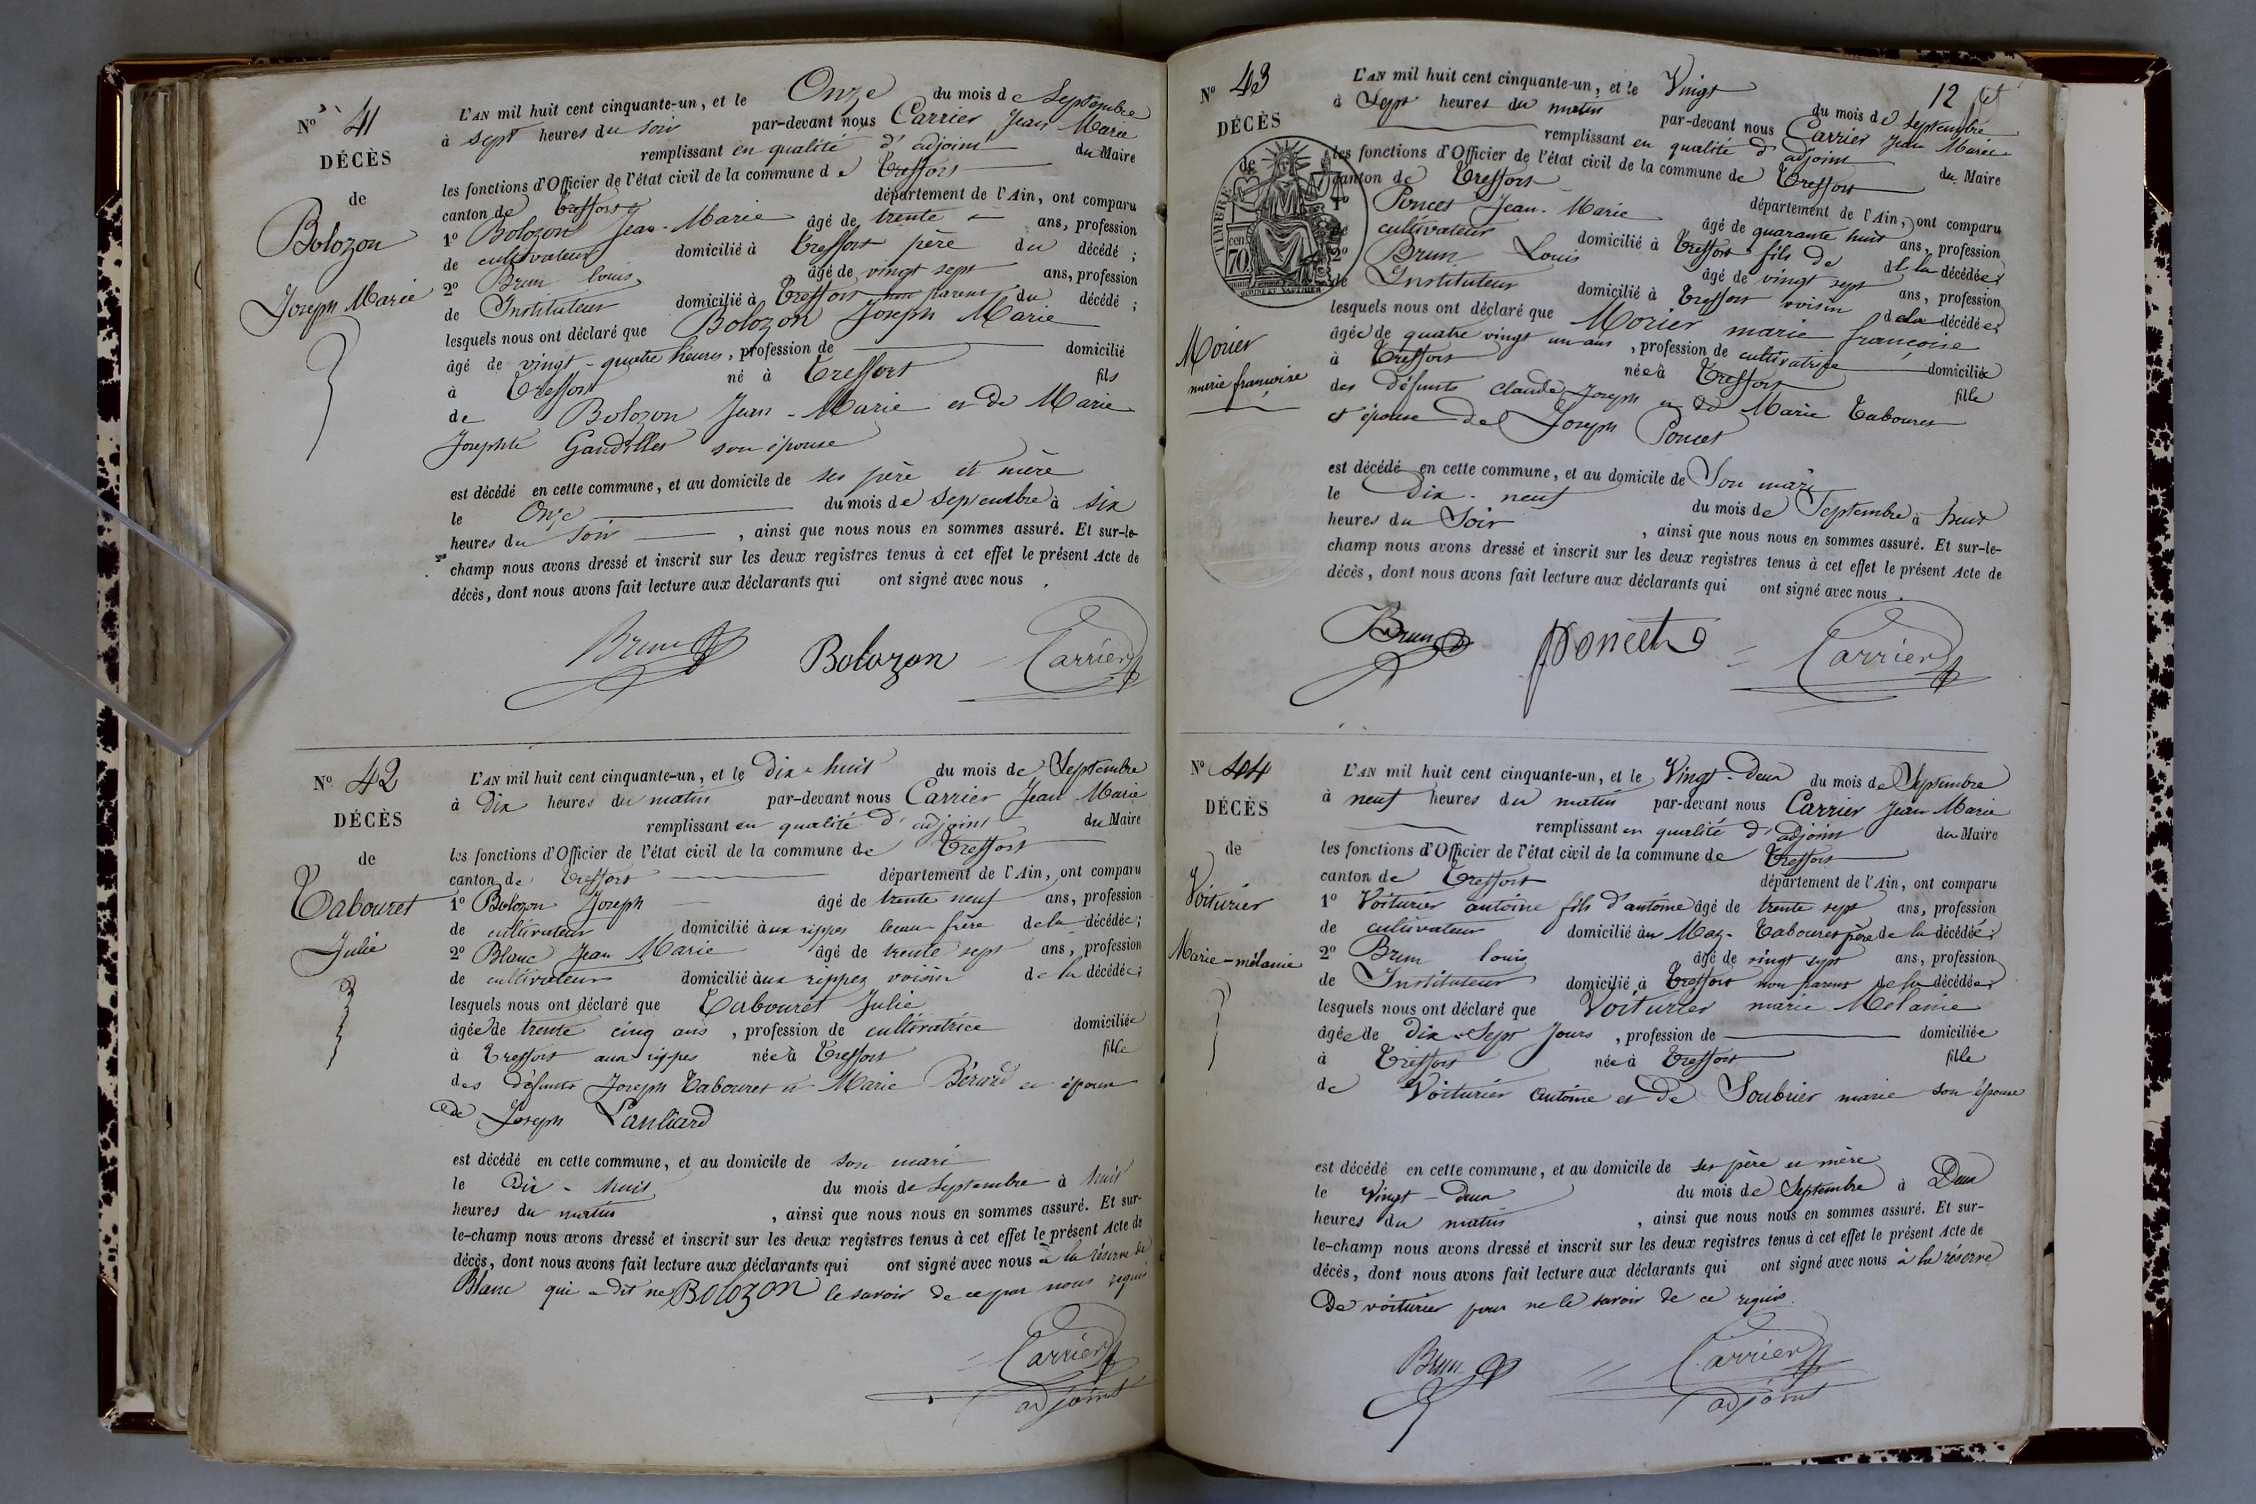 Nº 41
DÉCÈS
de
Bolozon
Joseph Marie
L'AN mil huit cent cinquante-un, et le Onze du mois de Septembre
à sept heures du soir par-devant nous Carrier Jean Marie
remplissant en qualité d'adjoint du Maire
les fonctions d'Officier de l'état civil de la commune de Treffort
canton de Treffort département de l'Ain, ont comparu
1º Bolozon Jean-Marie âgé de trente ans, profession
de cultivateur domicilié à Treffort père du décédé ;
2º Brun louis âgé de vingt sept ans, profession
de Instituteur domicilié à Treffort non parent du décédé ;
lesquels nous ont déclaré que Bolozon Joseph Marie
âgé de vingt-quatre heures, profession de domicilié
à Treffort né à Treffort fils
de Bolozon Jean-Marie et de Marie
Josephte son épouse
est décédé en cette commune, et au domicile de ses père et mère
le Onze du mois de Septembre à six
heures du soir , ainsi que nous nous en sommes assuré. Et sur-le-
champ nous avons dressé et inscrit sur les deux registres tenus à cet effet le présent Acte de
décès, dont nous avons fait lecture aux déclarants qui ont signé avec nous .
Brun Bolozon Carrier
Nº 42
DÉCÈS
de
Tabouret
Julie
L'AN mil huit cent cinquante-un, et le dix-huit du mois de Septembre
à Dix heures du matin par-devant nous Carrier Jean Marie
remplissant en qualité d'adjoint du Maire
les fonctions d'Officier de l'état civil de la commune de Treffort
canton de Treffort département de l'Ain, ont comparu
1º Bolozon Joseph âgé de trente neuf ans, profession
de cultivateur domicilié aux rippes beau frère de la décédée ;
2º Blanc Jean Marie âgé de trente sept ans, profession
de cultivateur domicilié aux rippes voisin de la décédée ;
lesquels nous ont déclaré que Tabouret Julie
âgée de trente cinq ans , profession de cultivatrice domiciliée
à Treffort aux rippes née à Treffort fille
des défunts Joseph Tabouret et Marie Bérard et épouse
de Joseph
est décédé en cette commune, et au domicile de son mari
le Dix-huit du mois de Septembre à huit
heures du matin , ainsi que nous nous en sommes assuré. Et sur-
le-champ nous avons dressé et inscrit sur les deux registres tenus à cet effet le présent Acte de
décès, dont nous avons fait lecture aux déclarants qui ont signé avec nous à la réserve de
Blanc qui a dit ne Bolozon le savoir de ce par nous requis
Carrier
adjoint
12
Nº 43
DÉCÈS
de
TIMBRE
70
Morier
marie françoise
L'AN mil huit cent cinquante-un, et le Vingt du mois de Septembre
à Sept heures du matin par-devant nous Carrier Jean Marie
remplissant en qualité d'adjoint du Maire
les fonctions d'Officier de l'état civil de la commune de Treffort
canton de Treffort département de l'Ain, ont comparu
1º Poncet Jean-Marie âgé de quarante huit ans, profession
de cultivateur domicilié à Treffort fils de la décédée ;
2º Brun Louis âgé de vingt sept ans, profession
de Instituteur domicilié à Treffort voisin de la décédée ;
lesquels nous ont déclaré que Morier marie françoise
âgée de quatre vingt un ans , profession de cultivatrice domiciliée
à Treffort née à Treffort fille
des défunts claude Joseph et de Marie Tabouret
et épouse de Joseph Poncet
est décédé en cette commune, et au domicile de Son mari
le dix-neuf du mois de Septembre à huit
heures du Soir , ainsi que nous nous en sommes assuré. Et sur-le-
champ nous avons dressé et inscrit sur les deux registres tenus à cet effet le présent Acte de
décès, dont nous avons fait lecture aux déclarants qui ont signé avec nous .
Brun poncet Carrier
Nº 44
DÉCÈS
de
Voiturier
Marie-mélanie
L'AN mil huit cent cinquante-un, et le Vingt-Deux du mois de Septembre
à neuf heures du matin par-devant nous Carrier Jean Marie
remplissant en qualité d'adjoint du Maire
les fonctions d'Officier de l'état civil de la commune de Treffort
canton de Treffort département de l'Ain, ont comparu
1º Voiturier antoine fils d'antoine âgé de trente sept ans, profession
de cultivateur domicilié au Maz-Tabouret père de la décédée ;
2º Brun louis âgé de vingt sept ans, profession
de Instituteur domicilié à Treffort non parent de la décédée ;
lesquels nous ont déclaré que Voiturier marie Mélanie
âgée de Dix-Sept Jours , profession de domiciliée
à Treffort née à Treffort fille
de Voiturier antoine et de Soubrier marie son épouse
est décédé en cette commune, et au domicile de ses père et mère
le Vingt-deux du mois de Septembre à Deux
heures du matin , ainsi que nous nous en sommes assuré. Et sur-
le-champ nous avons dressé et inscrit sur les deux registres tenus à cet effet le présent Acte de
décès, dont nous avons fait lecture aux déclarants qui ont signé avec nous à la réserve
De voiturier pour ne le savoir de ce requis.
Brun Carrier
adjoint